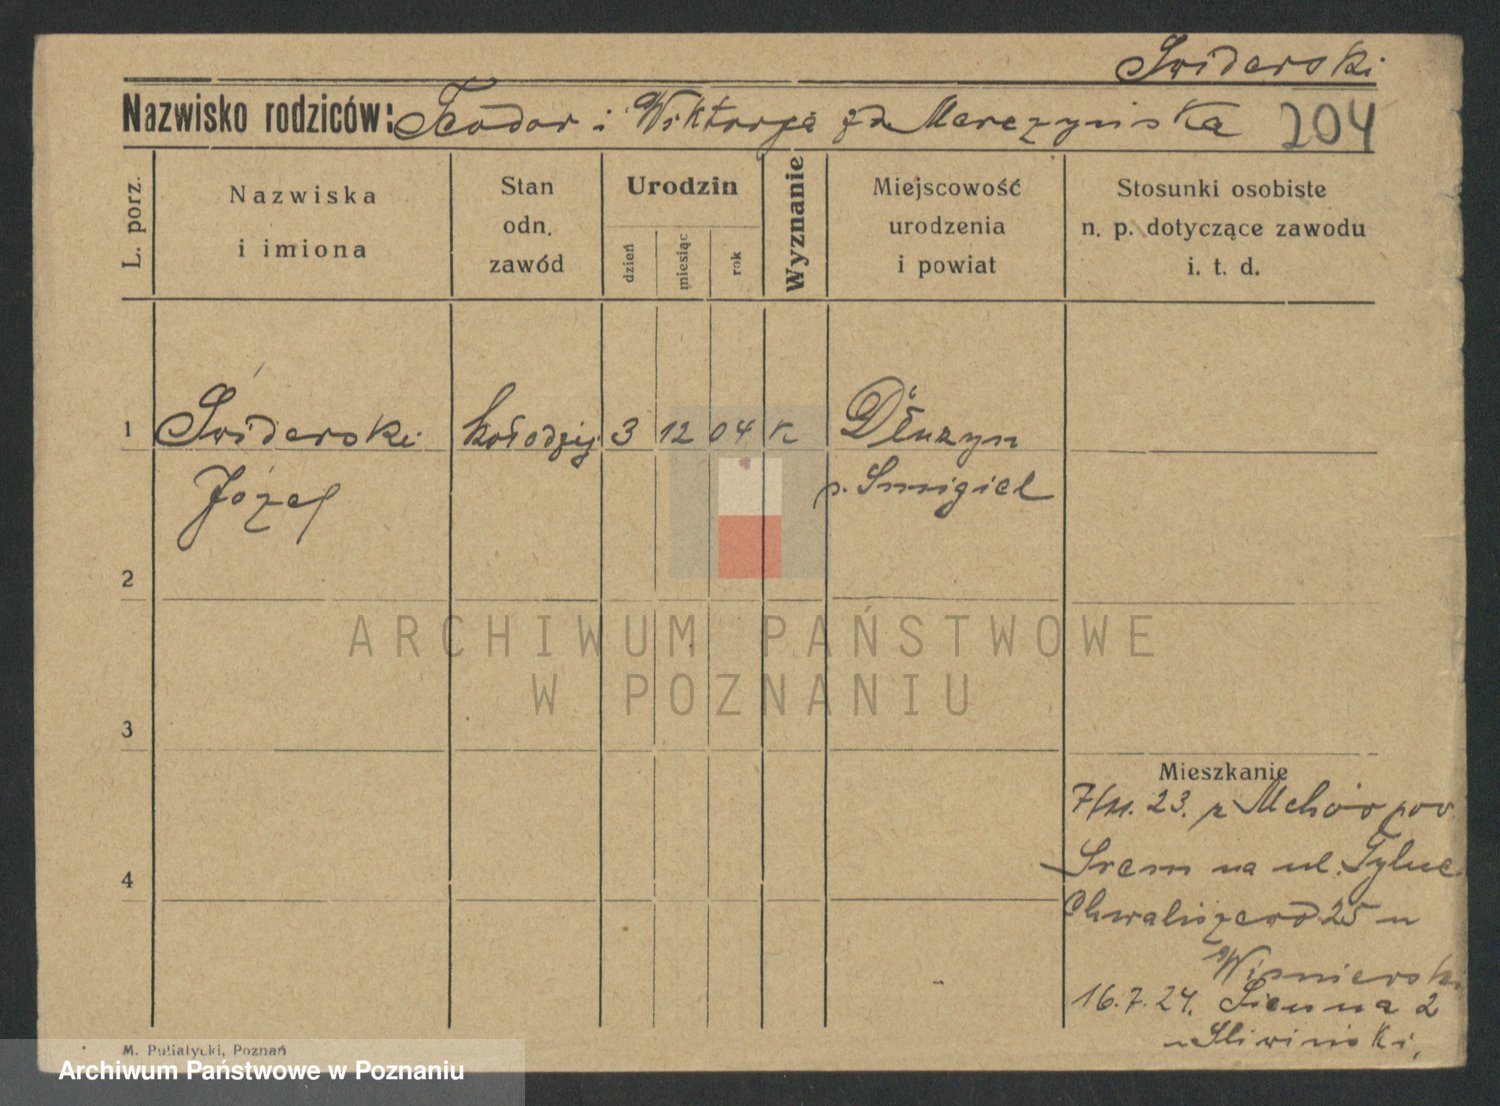 Swiderski
Nazwisko rodziców: Teodor i Wiktorja zd Marczyńska 204
L. porz.
Nazwiska
i imiona
Stan
odn.
zawód
Urodzin
dzień
miesiąc
rok
Wyznanie
Miejscowość
urodzenia
i powiat
Stosunki osobiste
n. p. dotyczące zawodu
i. t. d.
1 Świderski kołodziej 3 12 04 K Dłużyn
Józef p. Smigiel
2
3
4
Mieszkanie
7/11. 23. z Mchów pow.
Srem na ul. Tylne
Chwaliszewo 25 u
Wiśnierski
16.7.24. Sienna 2
u Sliwiński.
M. Putiatycki, Poznań
ARCHIWUM PAŃSTWOWE
W POZNANIU
Archiwum Państwowe w Poznaniu